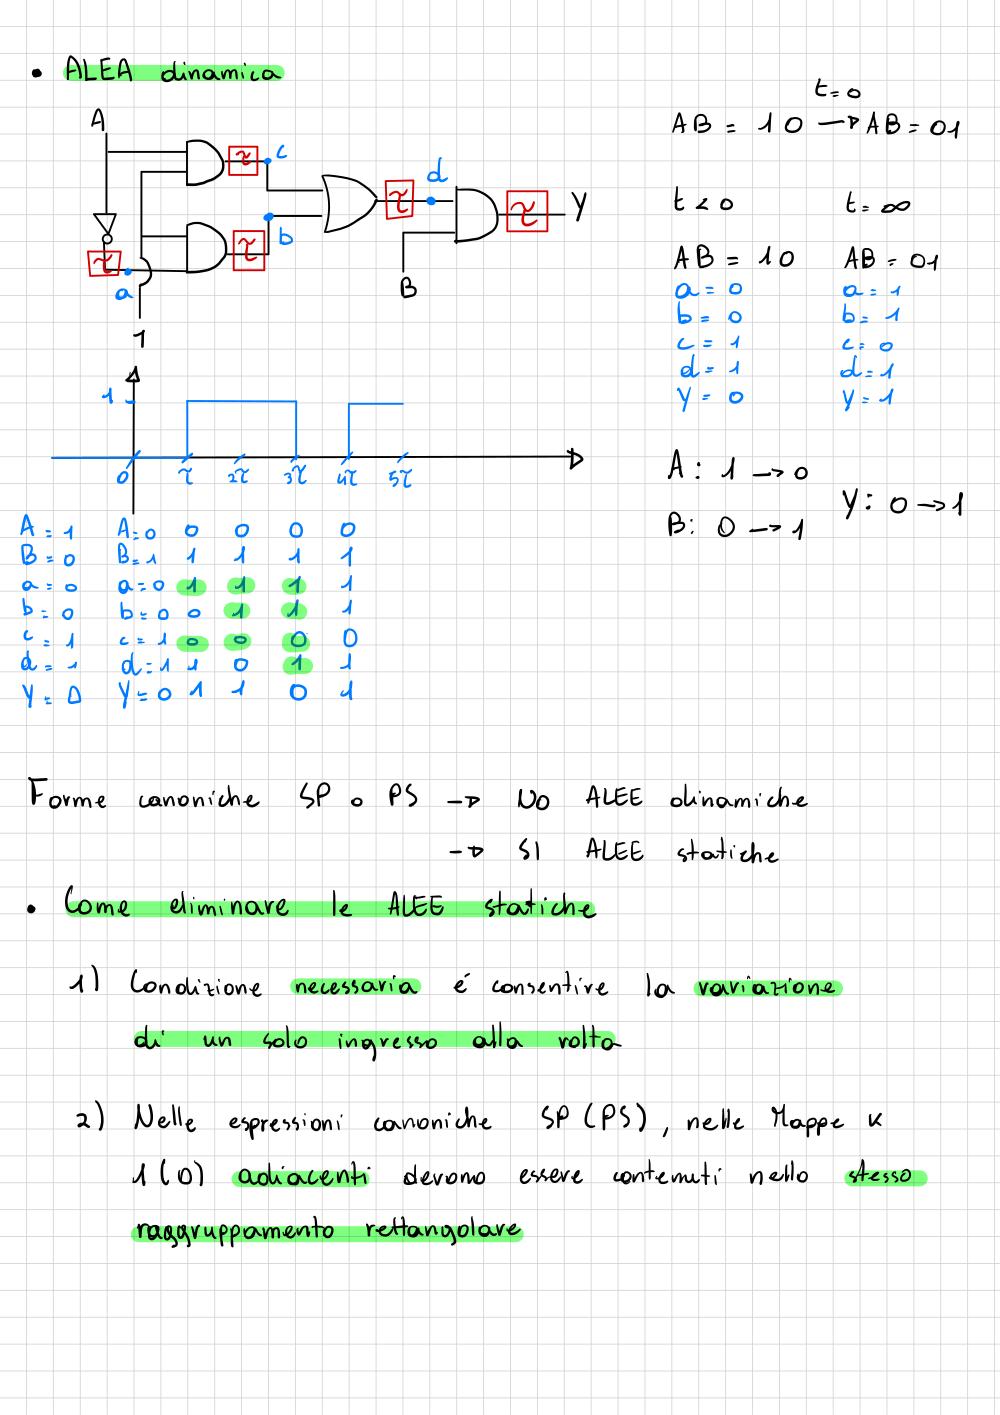 • ALEA dinamica
t=0
AB = 10 → AB = 01
A
τ c
τ b
τ a
1
τ d
B
τ Y
t < 0 t = ∞
AB = 10 AB = 01
a = 0 a = 1
b = 0 b = 1
c = 1 c = 0
d = 1 d = 1
Y = 0 Y = 1
1
0 τ 2τ 3τ 4τ 5τ
A: 1 → 0
B: 0 → 1
Y: 0 → 1
A = 1 A = 0 0 0 0 0
B = 0 B = 1 1 1 1 1
a = 0 a = 0 1 1 1 1
b = 0 b = 0 0 1 1 1
c = 1 c = 1 0 0 0 0
d = 1 d = 1 1 0 1 1
Y = 0 Y = 0 1 1 0 1
Forme canoniche SP o PS → NO ALEE dinamiche
→ SI ALEE statiche
• Come eliminare le ALEE statiche
1) Condizione necessaria é consentire la variazione
di un solo ingresso alla volta
2) Nelle espressioni canoniche SP (PS), nelle Mappe K
1 (0) adiacenti devono essere contenuti nello stesso
raggruppamento rettangolare